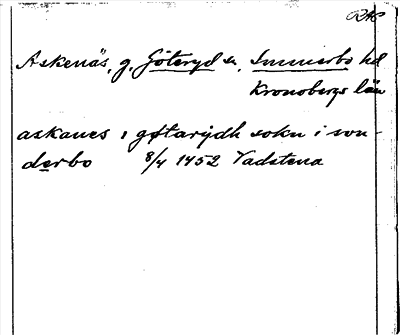 RAP
Askenäs, g. Göteryd sn, Sunnerbo hd
Kronobergs län
askanes i gøtarijdh sokn i swn-
derbo 8/4 1452 Vadstena